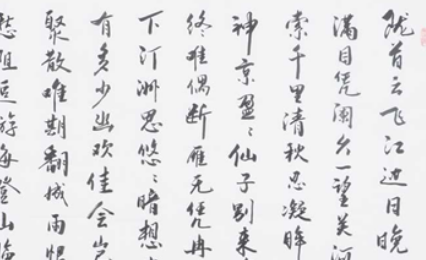 陇首云飞江边日晚
满目凭阑久一望关河
索千里清秋忍凝眸
神京盈〻仙子别来
终难偶断雁无凭冉
下汀洲思悠〻暗想
有多少幽欢佳会岂
聚散难期翻成雨恨
愁阻追游每登山临